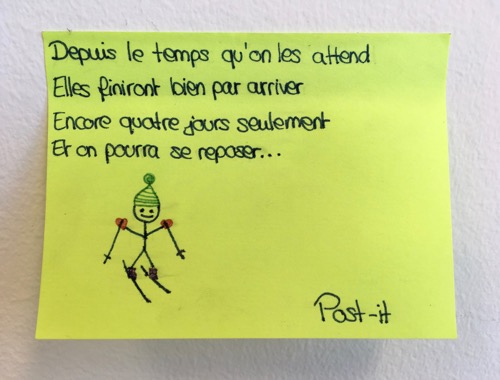 Depuis le temps qu'on les attend
Elles finiront bien par arriver
Encore quatre jours seulement
Et on pourra se reposer...
Post-it